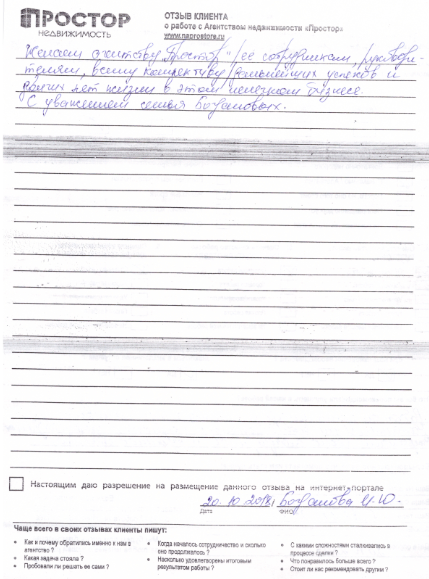 ПРОСТОР
НЕДВИЖИМОСТЬ
ОТЗЫВ КЛИЕНТА
о работе с Агентством недвижимости «Простор»
www.naprostore.ru
Желаем агентству "Простор" /ее сотрудникам, руководи-
телям, всему коллективу/ дальнейших успехов и
долгих лет жизни в этом нелегком бизнесе.
С уважением семья Богдановых.
Настоящим даю разрешение на размещение данного отзыва на интернет-портале
20.10.2018г. Богданова И.Ю.
Дата
ФИО
Чаще всего в своих отзывах клиенты пишут:
• Как и почему обратились именно к нам в
агентство ?
• Какая задача стояла ?
• Пробовали ли решать ее сами ?
• Когда началось сотрудничество и сколько
оно продолжалось ?
• Насколько удовлетворены итоговым
результатом работы ?
• С какими сложностями сталкивались в
процессе сделки ?
• Что понравилось больше всего ?
• Стоит ли нас рекомендовать другим ?